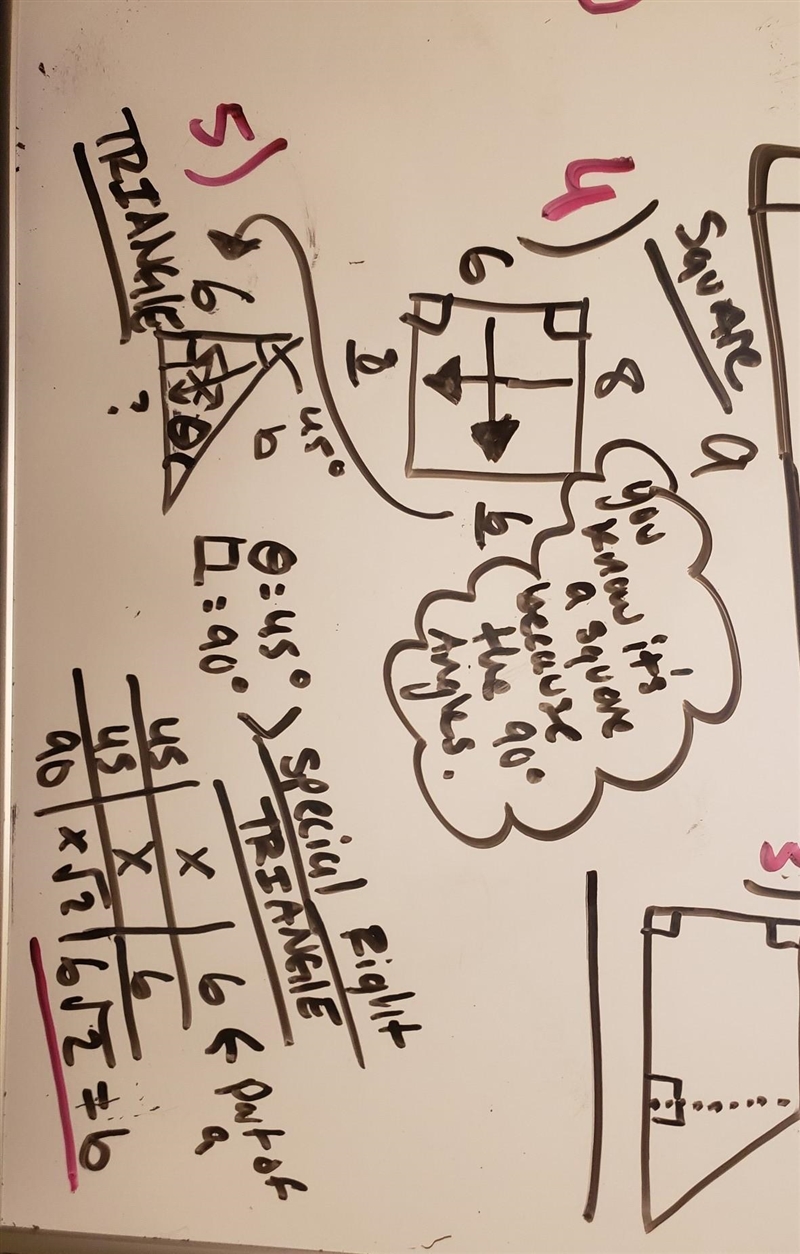 3)
4)
SQUARE
a
8
6
6
8
you
know it's
a square
because
the 90°
Angles.
5)
TRIANGLE
6
45°
b
θ
?
θ=45° > Special Right
□=90°
TRIANGLE
45 | x | 6 ← part of a
45 | x | 6
90 | x√2 | 6√2 = b